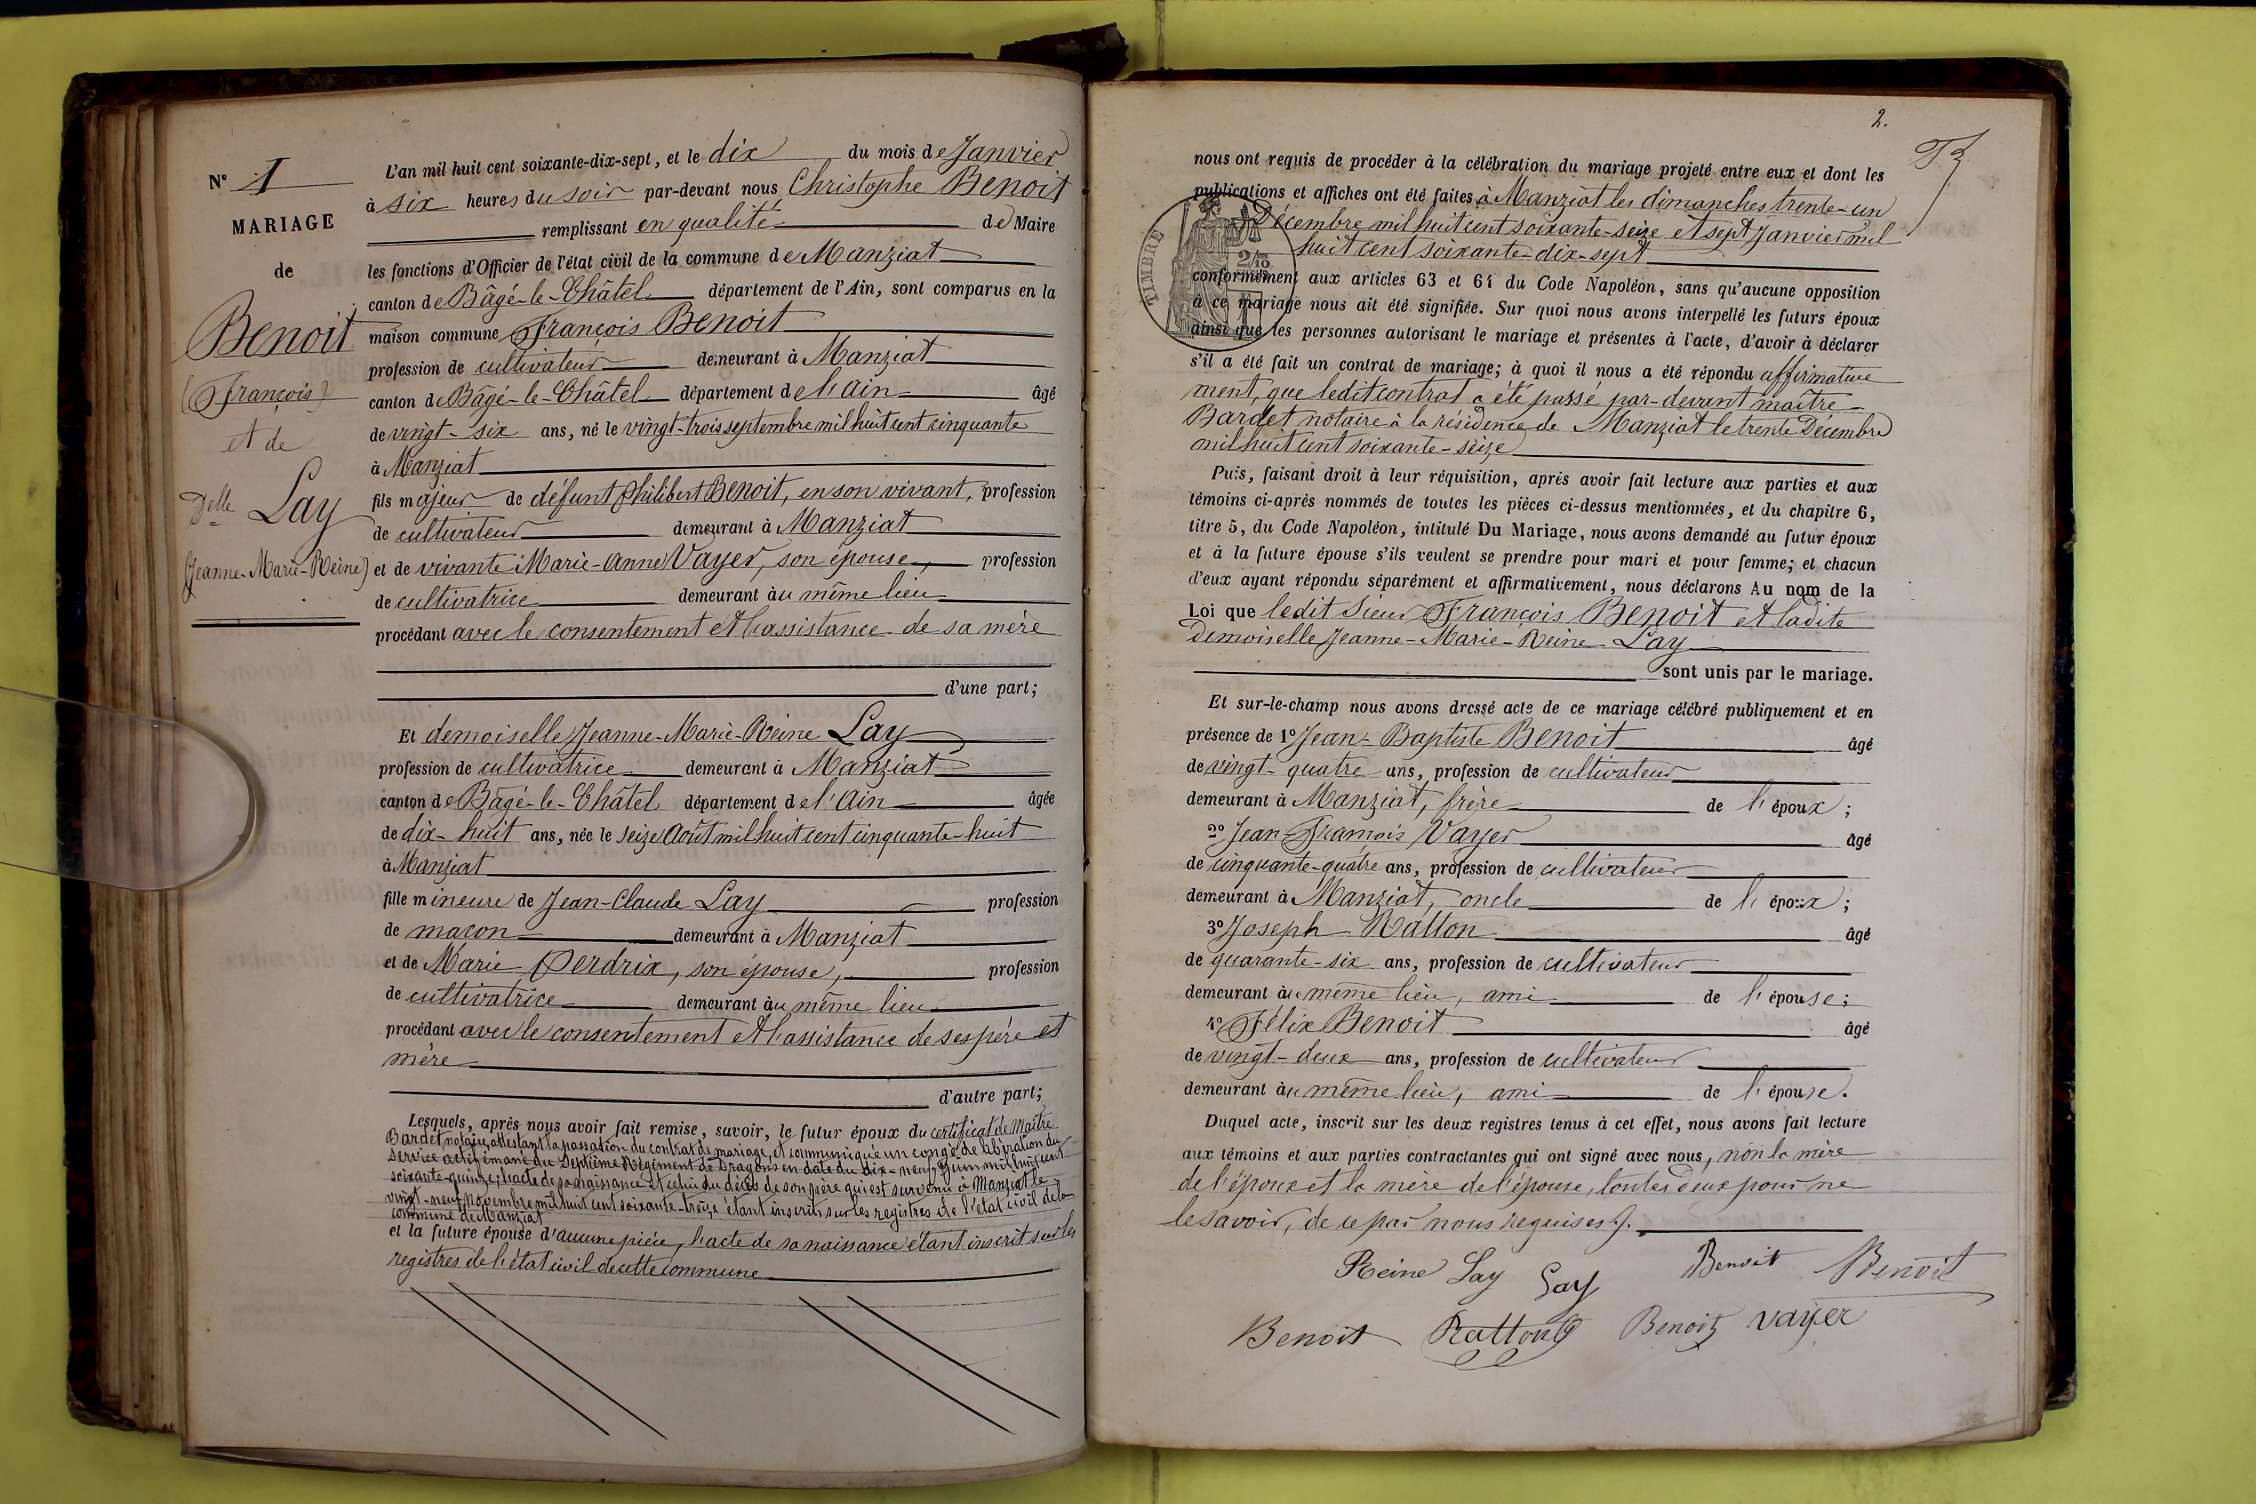 N° 1
MARIAGE
de
Benoit
(François)
et de
Delle Lay
(Jeanne-Marie-Reine)
L'an mil huit cent soixante-dix-sept, et le dix du mois de Janvier
à six heures du soir par-devant nous Christophe Benoit
remplissant en qualité de Maire
les fonctions d'Officier de l'état civil de la commune de Manziat
canton de Bâgé-le-Châtel département de l'Ain, sont comparus en la
maison commune François Benoit
profession de cultivateur demeurant à Manziat
canton de Bâgé-le-Châtel département de l'Ain âgé
de vingt-six ans, né le vingt-trois septembre mil huit cent cinquante
à Manziat
fils majeur de défunt Philibert Benoit, en son vivant, profession
de cultivateur demeurant à Manziat
et de vivante Marie-Anne Vayer, son épouse, profession
de cultivatrice demeurant au même lieu
procédant avec le consentement et l'assistance de sa mère
d'une part;
Et demoiselle Jeanne-Marie-Reine Lay
profession de cultivatrice demeurant à Manziat
canton de Bâgé-le-Châtel département de l'Ain âgée
de dix-huit ans, née le seize Août mil huit cent cinquante-huit
à Manziat
fille mineure de Jean-Claude Lay profession
de maçon demeurant à Manziat
et de Marie Perdrix, son épouse, profession
de cultivatrice demeurant au même lieu
procédant avec le consentement et l'assistance de ses père et
mère
d'autre part;
Lesquels, après nous avoir fait remise, savoir, le futur époux du certificat de Maître
Bardet notaire, attestant la passation du contrat de mariage, et communiqué un congé de libération du
service actif émané du Septième Régiment de Dragons en date du dix-neuf Juin mil huit cent
soixante-quinze; l'acte de sa naissance et celui du décès de son père qui est survenu à Manziat le
vingt-neuf Novembre mil huit cent soixante-treize étant inscrits sur les registres de l'état civil de la
commune de Manziat
et la future épouse d'aucune pièce, l'acte de sa naissance étant inscrit sur les
registres de l'état civil de cette commune
2.
TIMBRE
2/10
nous ont requis de procéder à la célébration du mariage projeté entre eux et dont les
publications et affiches ont été faites à Manziat les dimanches trente-un
Décembre mil huit cent soixante-seize et sept Janvier mil
huit cent soixante-dix-sept
conformément aux articles 63 et 64 du Code Napoléon, sans qu'aucune opposition
à ce mariage nous ait été signifiée. Sur quoi nous avons interpellé les futurs époux
ainsi que les personnes autorisant le mariage et présentes à l'acte, d'avoir à déclarer
s'il a été fait un contrat de mariage; à quoi il nous a été répondu affirmative
ment, que ledit contrat a été passé par-devant maître
Bardet notaire à la résidence de Manziat le trente Décembre
mil huit cent soixante-seize
Puis, faisant droit à leur réquisition, après avoir fait lecture aux parties et aux
témoins ci-après nommés de toutes les pièces ci-dessus mentionnées, et du chapitre 6,
titre 5, du Code Napoléon, intitulé Du Mariage, nous avons demandé au futur époux
et à la future épouse s'ils veulent se prendre pour mari et pour femme; et chacun
d'eux ayant répondu séparément et affirmativement, nous déclarons Au nom de la
Loi que ledit Sieur François Benoit et ladite
Demoiselle Jeanne-Marie-Reine Lay
sont unis par le mariage.
Et sur-le-champ nous avons dressé acte de ce mariage célébré publiquement et en
présence de 1° Jean-Baptiste Benoit âgé
de vingt-quatre ans, profession de cultivateur
demeurant à Manziat, frère de l'époux;
2° Jean-François Vayer âgé
de cinquante-quatre ans, profession de cultivateur
demeurant à Manziat, oncle de l'époux;
3° Joseph Ratton âgé
de quarante-six ans, profession de cultivateur
demeurant au même lieu, ami de l'épouse;
4° Félix Benoit âgé
de vingt-deux ans, profession de cultivateur
demeurant au même lieu, ami de l'épouse.
Duquel acte, inscrit sur les deux registres tenus à cet effet, nous avons fait lecture
aux témoins et aux parties contractantes qui ont signé avec nous, non la mère
de l'époux et la mère de l'épouse, toutes deux pour ne
le savoir, de ce par nous requises.
Reine Lay Lay Benoit Benoit
Benoit Ratton Benoit Vayer